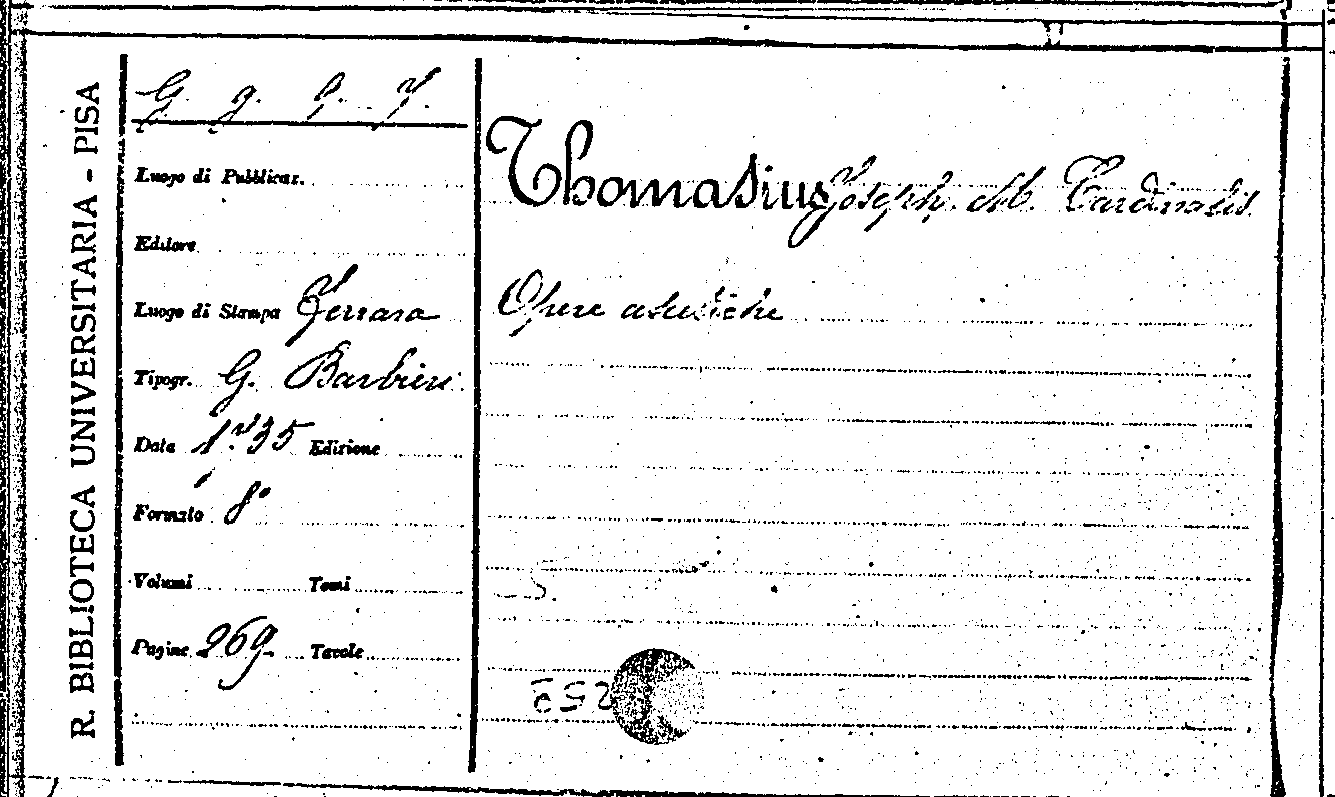 R. BIBLIOTECA UNIVERSITARIA - PISA
G. g. 8. 7.
Luogo di Pubblicaz.
Editore
Luogo di Stampa Ferrara
Tipogr. G. Barbieri
Data 1735 Edizione
Formato 8°
Volumi Tomi
Pagine 269. Tavole
Thomasius Joseph. M. Cardinalis
Opere ascetiche